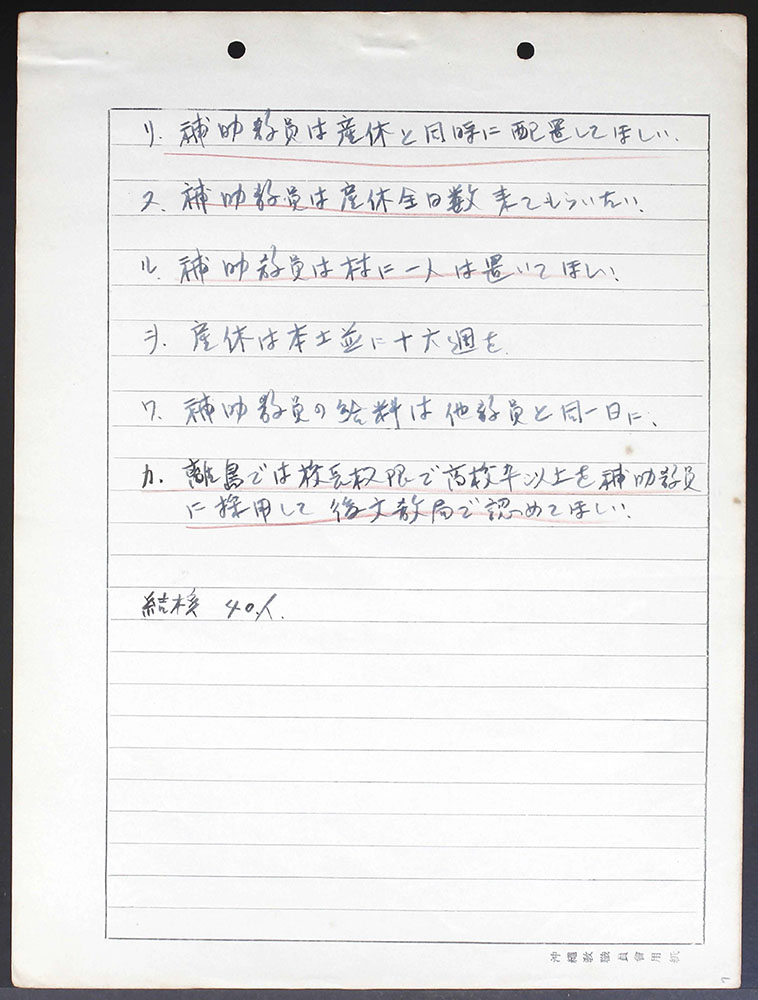 リ. 補助教員は産休と同時に配置してほしい.
ヌ. 補助教員は産休全日数来てもらいたい.
ル. 補助教員は村に一人は置いてほしい.
ヲ. 産休は本土並に十六週を.
ワ. 補助教員の給料は他教員と同一日に.
カ. 離島では校長权限で高校卆以上を補助教員
に採用して後文教局で認めてほしい.
結核 40人.
沖繩敎職員會用紙